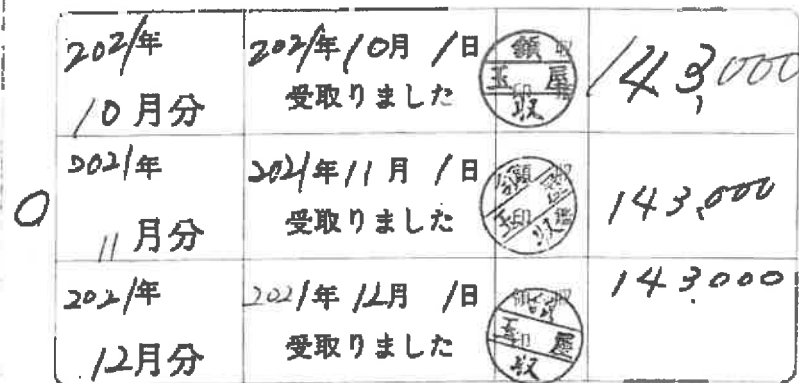 2021年
10月分
2021年10月1日
受取りました
領収
玉屋
印
収
143,000
2021年
11月分
2021年11月1日
受取りました
領収
玉屋
印
収
143,000
2021年
12月分
2021年12月1日
受取りました
領収
玉屋
印
収
143,000